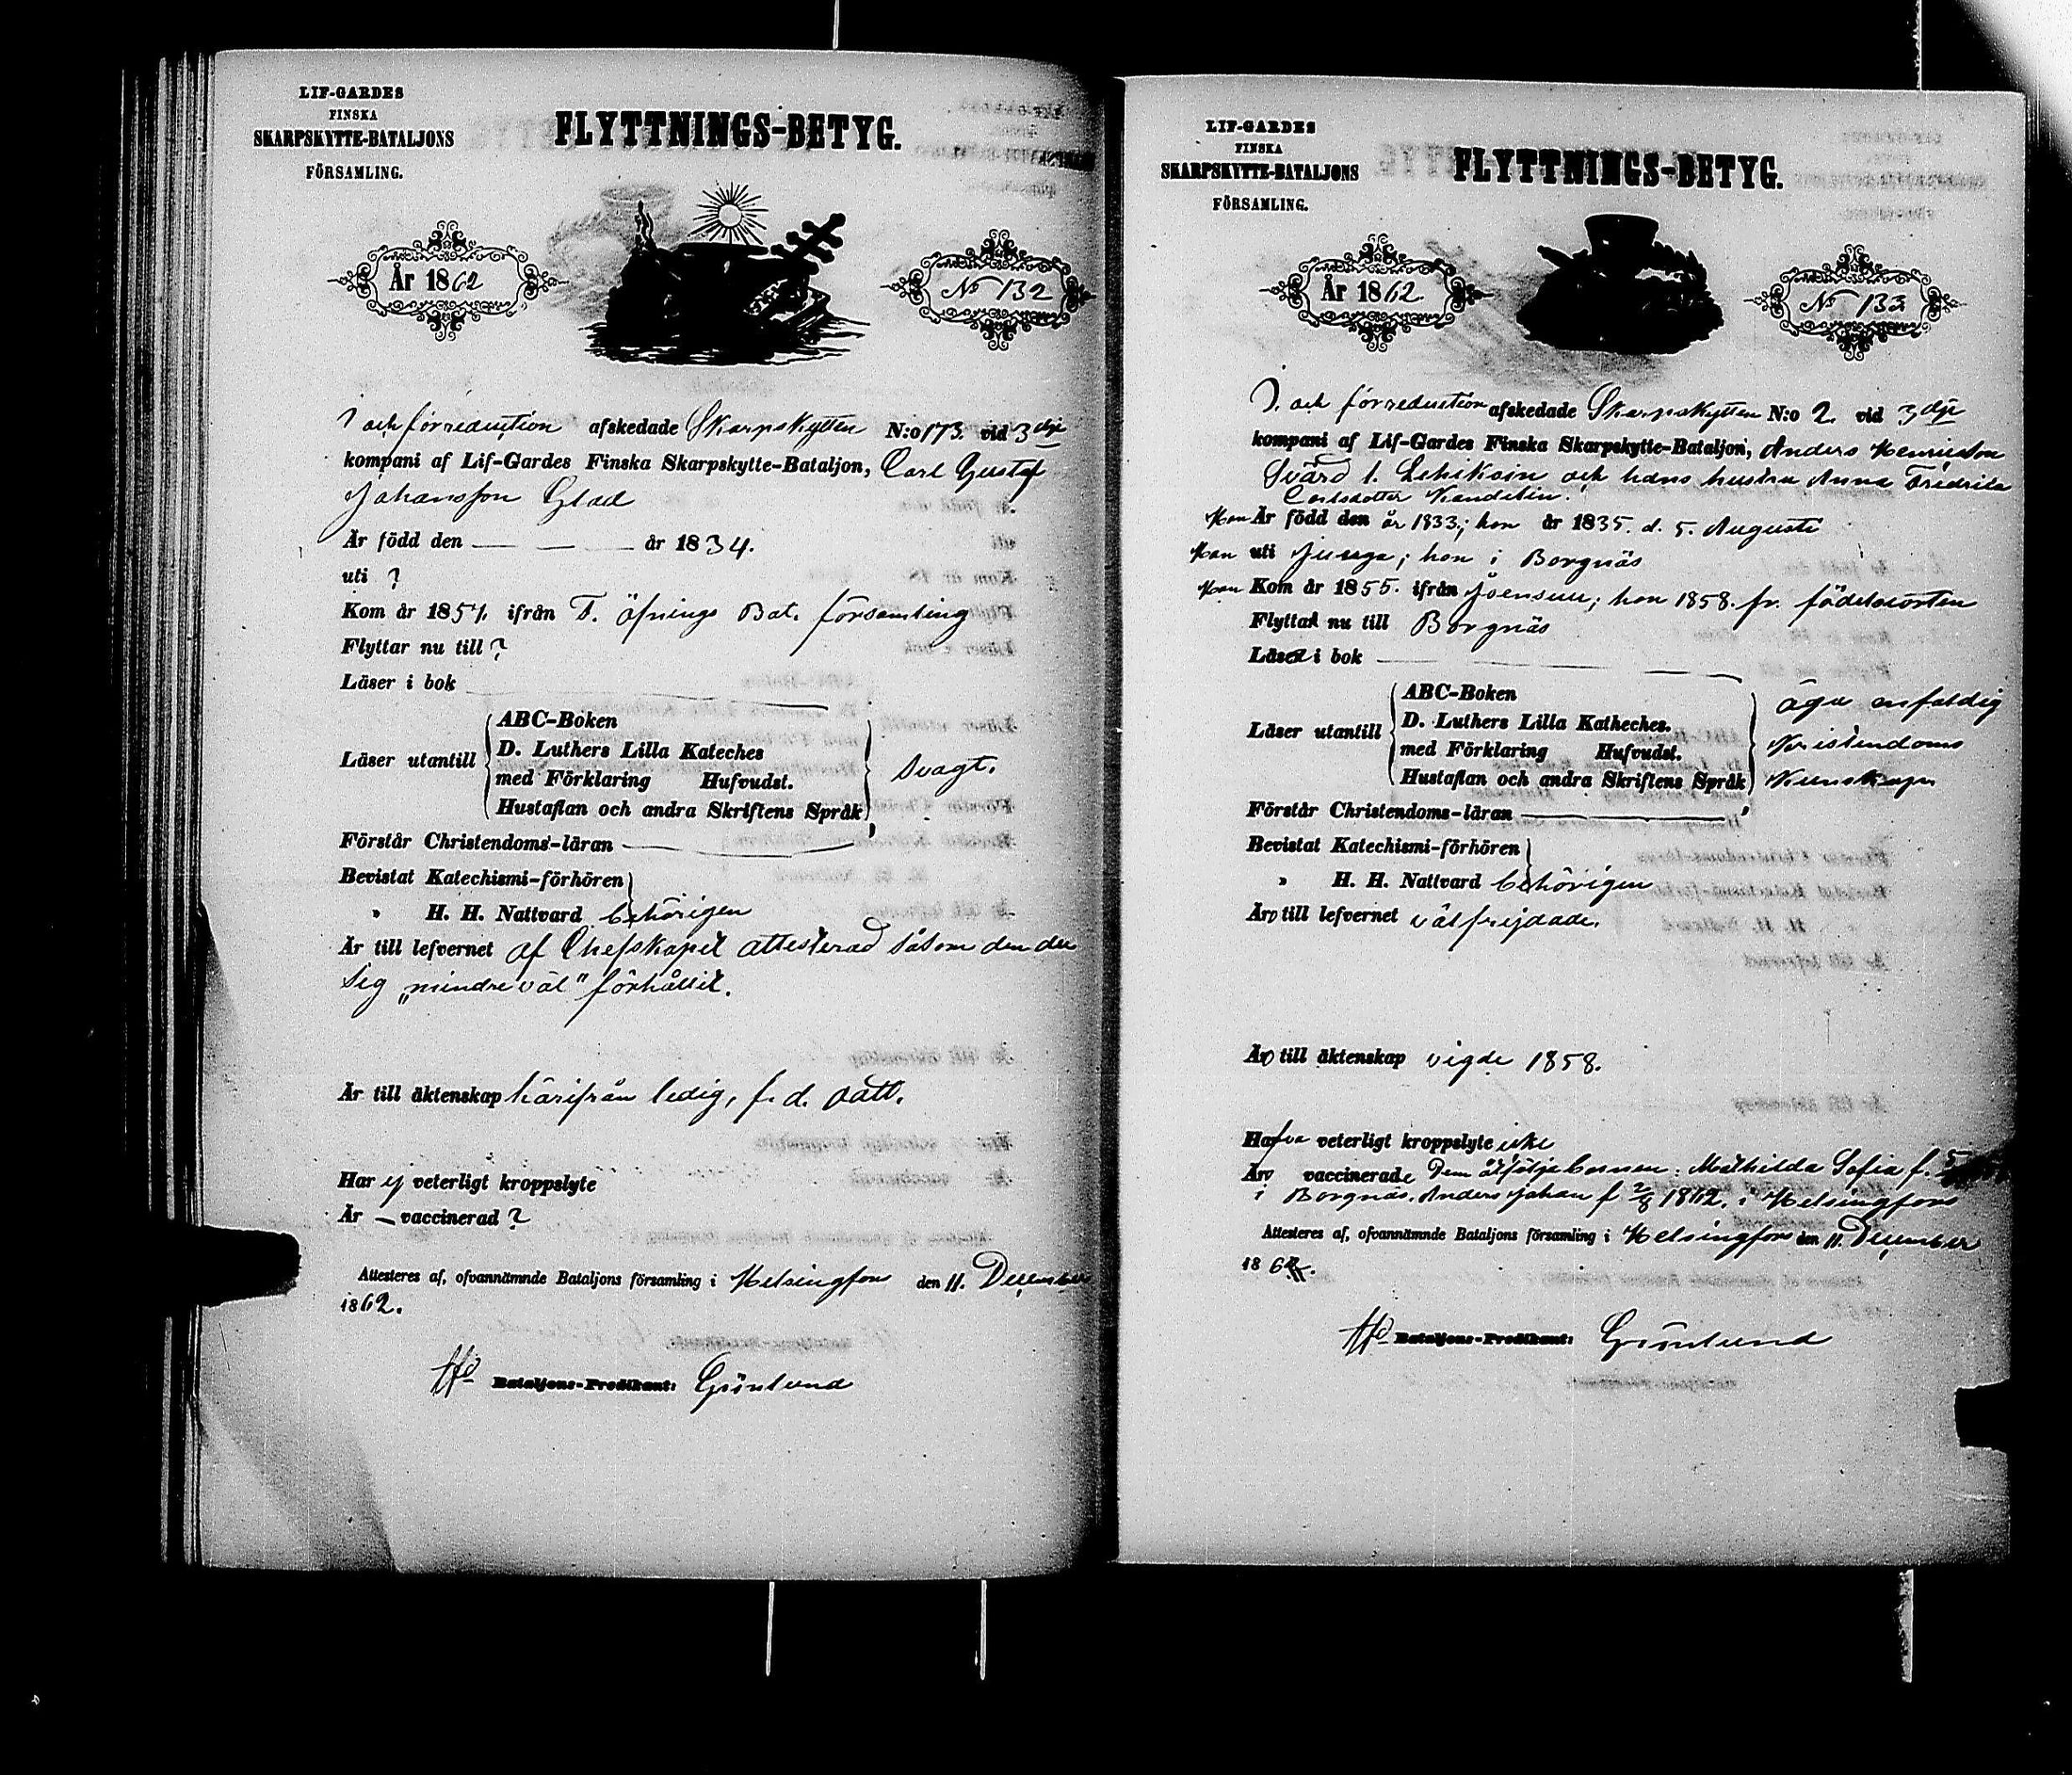 LIF-GARDES
FINSKA
SKARPSKYTTE-BATALJONS
FÖRSAMLING.
FLYTTNINGS-BETYG.
År 1862
No 132
I och för reduction afskedade Skarpskytten N:o 173. vid 3dje
kompani af Lif-Gardes Finska Skarpskytte-Bataljon, Carl Gustaf
Johansson Glad
Är född den — — — år 1834.
uti ?
Kom år 1857. ifrån F. öfnings Bat. församling
Flyttar nu till ?
Läser i bok
Läser utantill
ABC-Boken
D. Luthers Lilla Kateches
med Förklaring Hufvudst.
Hustaflan och andra Skriftens Språk
svagt.
Förstår Christendoms-läran
Bevistat Katechismi-förhören
» H. H. Nattvard behörigen
Är till lefvernet af Chefskapet attesterad såsom den der
sig „mindre väl" förhållit.
Är till äktenskap härifrån ledig, f. d.
Har ej veterligt kroppslyte
Är — vaccinerad ?
Attesteres af, ofvannämnde Bataljons församling i Helsingfors den 11. December
1862.
Bataljons-Predikant: Grönlund
LIF-GARDES
FINSKA
SKARPSKYTTE-BATALJONS
FÖRSAMLING.
FLYTTNINGS-BETYG.
År 1862
No 133
I. och för reduction afskedade Skarpskytten N:o 2. vid 3dje
kompani af Lif-Gardes Finska Skarpskytte-Bataljon, Anders Henricsson
Svärd l. Lehikoin och hans hustru Anna Fredrika
Carlsdotter Kandelin.
Han Är född den år 1833; hon år 1835. d. 5. Augusti
Han uti Juuga; hon i Borgnäs
Han Kom år 1855. ifrån Joensuu; hon 1858. fr. födelseorten
Flytta nu till Borgnäs
Läser i bok
Läser utantill
ABC-Boken
D. Luthers Lilla Katheches.
med Förklaring Hufvudst.
Hustaflan och andra Skriftens Språk
äga enfaldig
Kristendoms
Kunskaper
Förstår Christendoms-läran
Bevistat Katechismi-förhören
» H. H. Nattvard behörigen
Äro till lefvernet välfrejdade.
Äro till äktenskap vigde 1858.
Hafva veterligt kroppslyte icke
Äro vaccinerade Dem åtfölja barnen: Mathilda Sofia f.
i Borgnäs. Anders Johan f 2/8 1862. i Helsingfors
Attesteres af, ofvannämnde Bataljons församling i Helsingfors den 11. December
1862.
Bataljons-Predikant: Grönlund